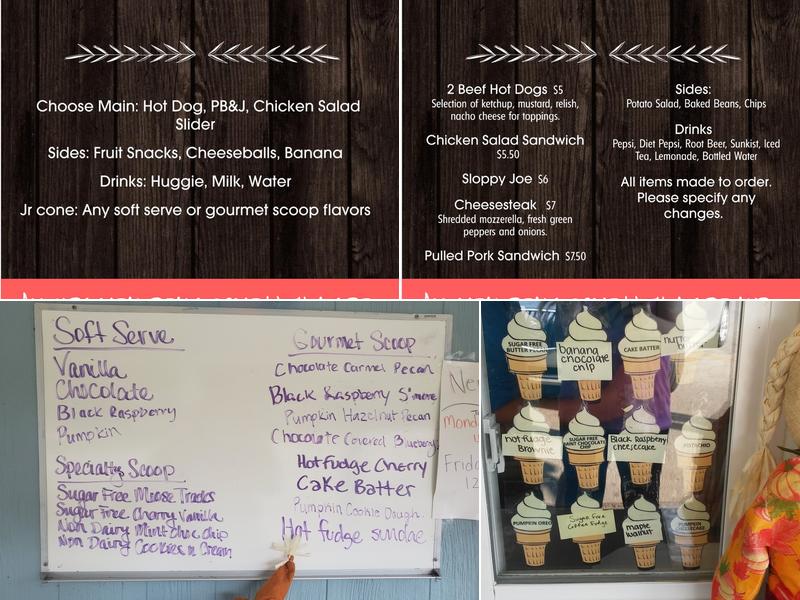 Choose Main: Hot Dog, PB&J, Chicken Salad
Slider
Sides: Fruit Snacks, Cheeseballs, Banana
Drinks: Huggie, Milk, Water
Jr cone: Any soft serve or gourmet scoop flavors
2 Beef Hot Dogs $5
Selection of ketchup, mustard, relish,
nacho cheese for toppings.
Chicken Salad Sandwich
$5.50
Sloppy Joe $6
Cheesesteak $7
Shredded mozzerella, fresh green
peppers and onions.
Pulled Pork Sandwich $7.50
Sides:
Potato Salad, Baked Beans, Chips
Drinks
Pepsi, Diet Pepsi, Root Beer, Sunkist, Iced
Tea, Lemonade, Bottled Water
All items made to order.
Please specify any
changes.
Soft Serve
Vanilla
Chocolate
Black Raspberry
Pumpkin
Specialty Scoop
Sugar Free Moose Tracks
Sugar Free Cherry Vanilla
Non Dairy Mint choc chip
Non Dairy Cookies n Cream
Gourmet Scoop
Chocolate Carmel Pecan
Black Raspberry S'more
Pumpkin Hazelnut Pecan
Chocolate Covered Blueberry
Hot fudge Cherry
Cake Batter
Pumpkin Cookie Dough
Hot fudge sundae
Ne
Mond
Frida
12
SUGAR FREE
BUTTER PECAN
banana
chocolate
chip
CAKE BATTER
nutter
butter
hot fudge
Brownie
SUGAR FREE
MINT CHOCOLATE
CHIP
Black Raspberry
cheesecake
PISTACHIO
PUMPKIN OREO
Sugar Free
Coffee Fudge
maple
walnut
PUMPKIN
CHEESECAKE